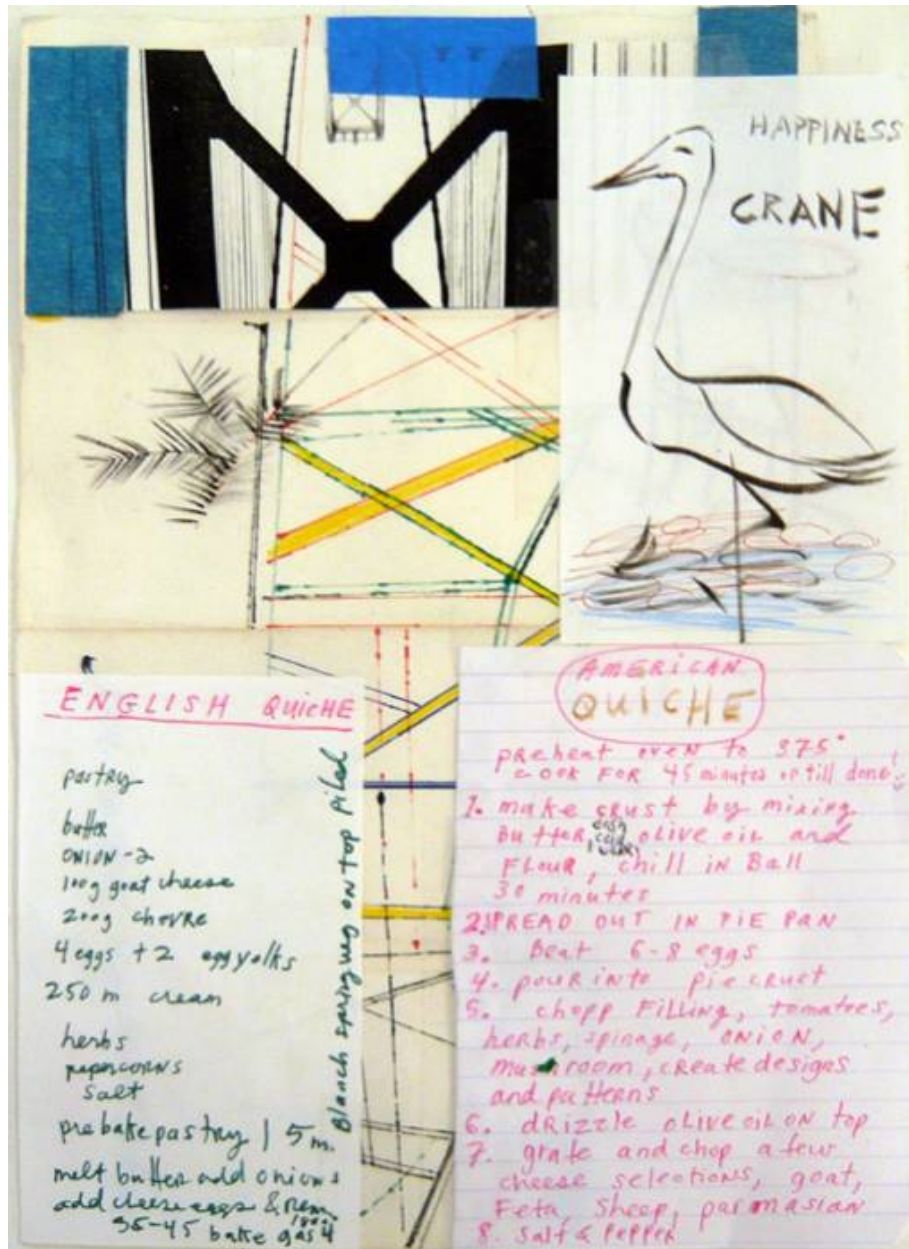 HAPPINESS
CRANE
ENGLISH QUICHE
pastry
butter
ONION-2
100g goat cheese
200g chevre
4 eggs + 2 egg yolks
250 m cream
herbs
papercorns
salt
prebake pastry 15 m.
melt butter add onions
add cheese eggs &
35-45 bake gas 4
Blanch spring veg on top
AMERICAN
QUICHE
preheat oven to 375°
COOK FOR 45 minutes or till done!
1. make crust by mixing
butter, olive oil and
FLOUR, chill in Ball
30 minutes
2. SPREAD OUT IN PIE PAN
3. Beat 6-8 eggs
4. pour into pie crust
5. chopp FILLING, tomatoes,
herbs, spinage, ONION,
mushroom, create designs
and patterns
6. drizzle olive oil on top
7. grate and chop a few
cheese selections, goat,
Feta, Sheep, parmasian
8. Salt & PEPPER